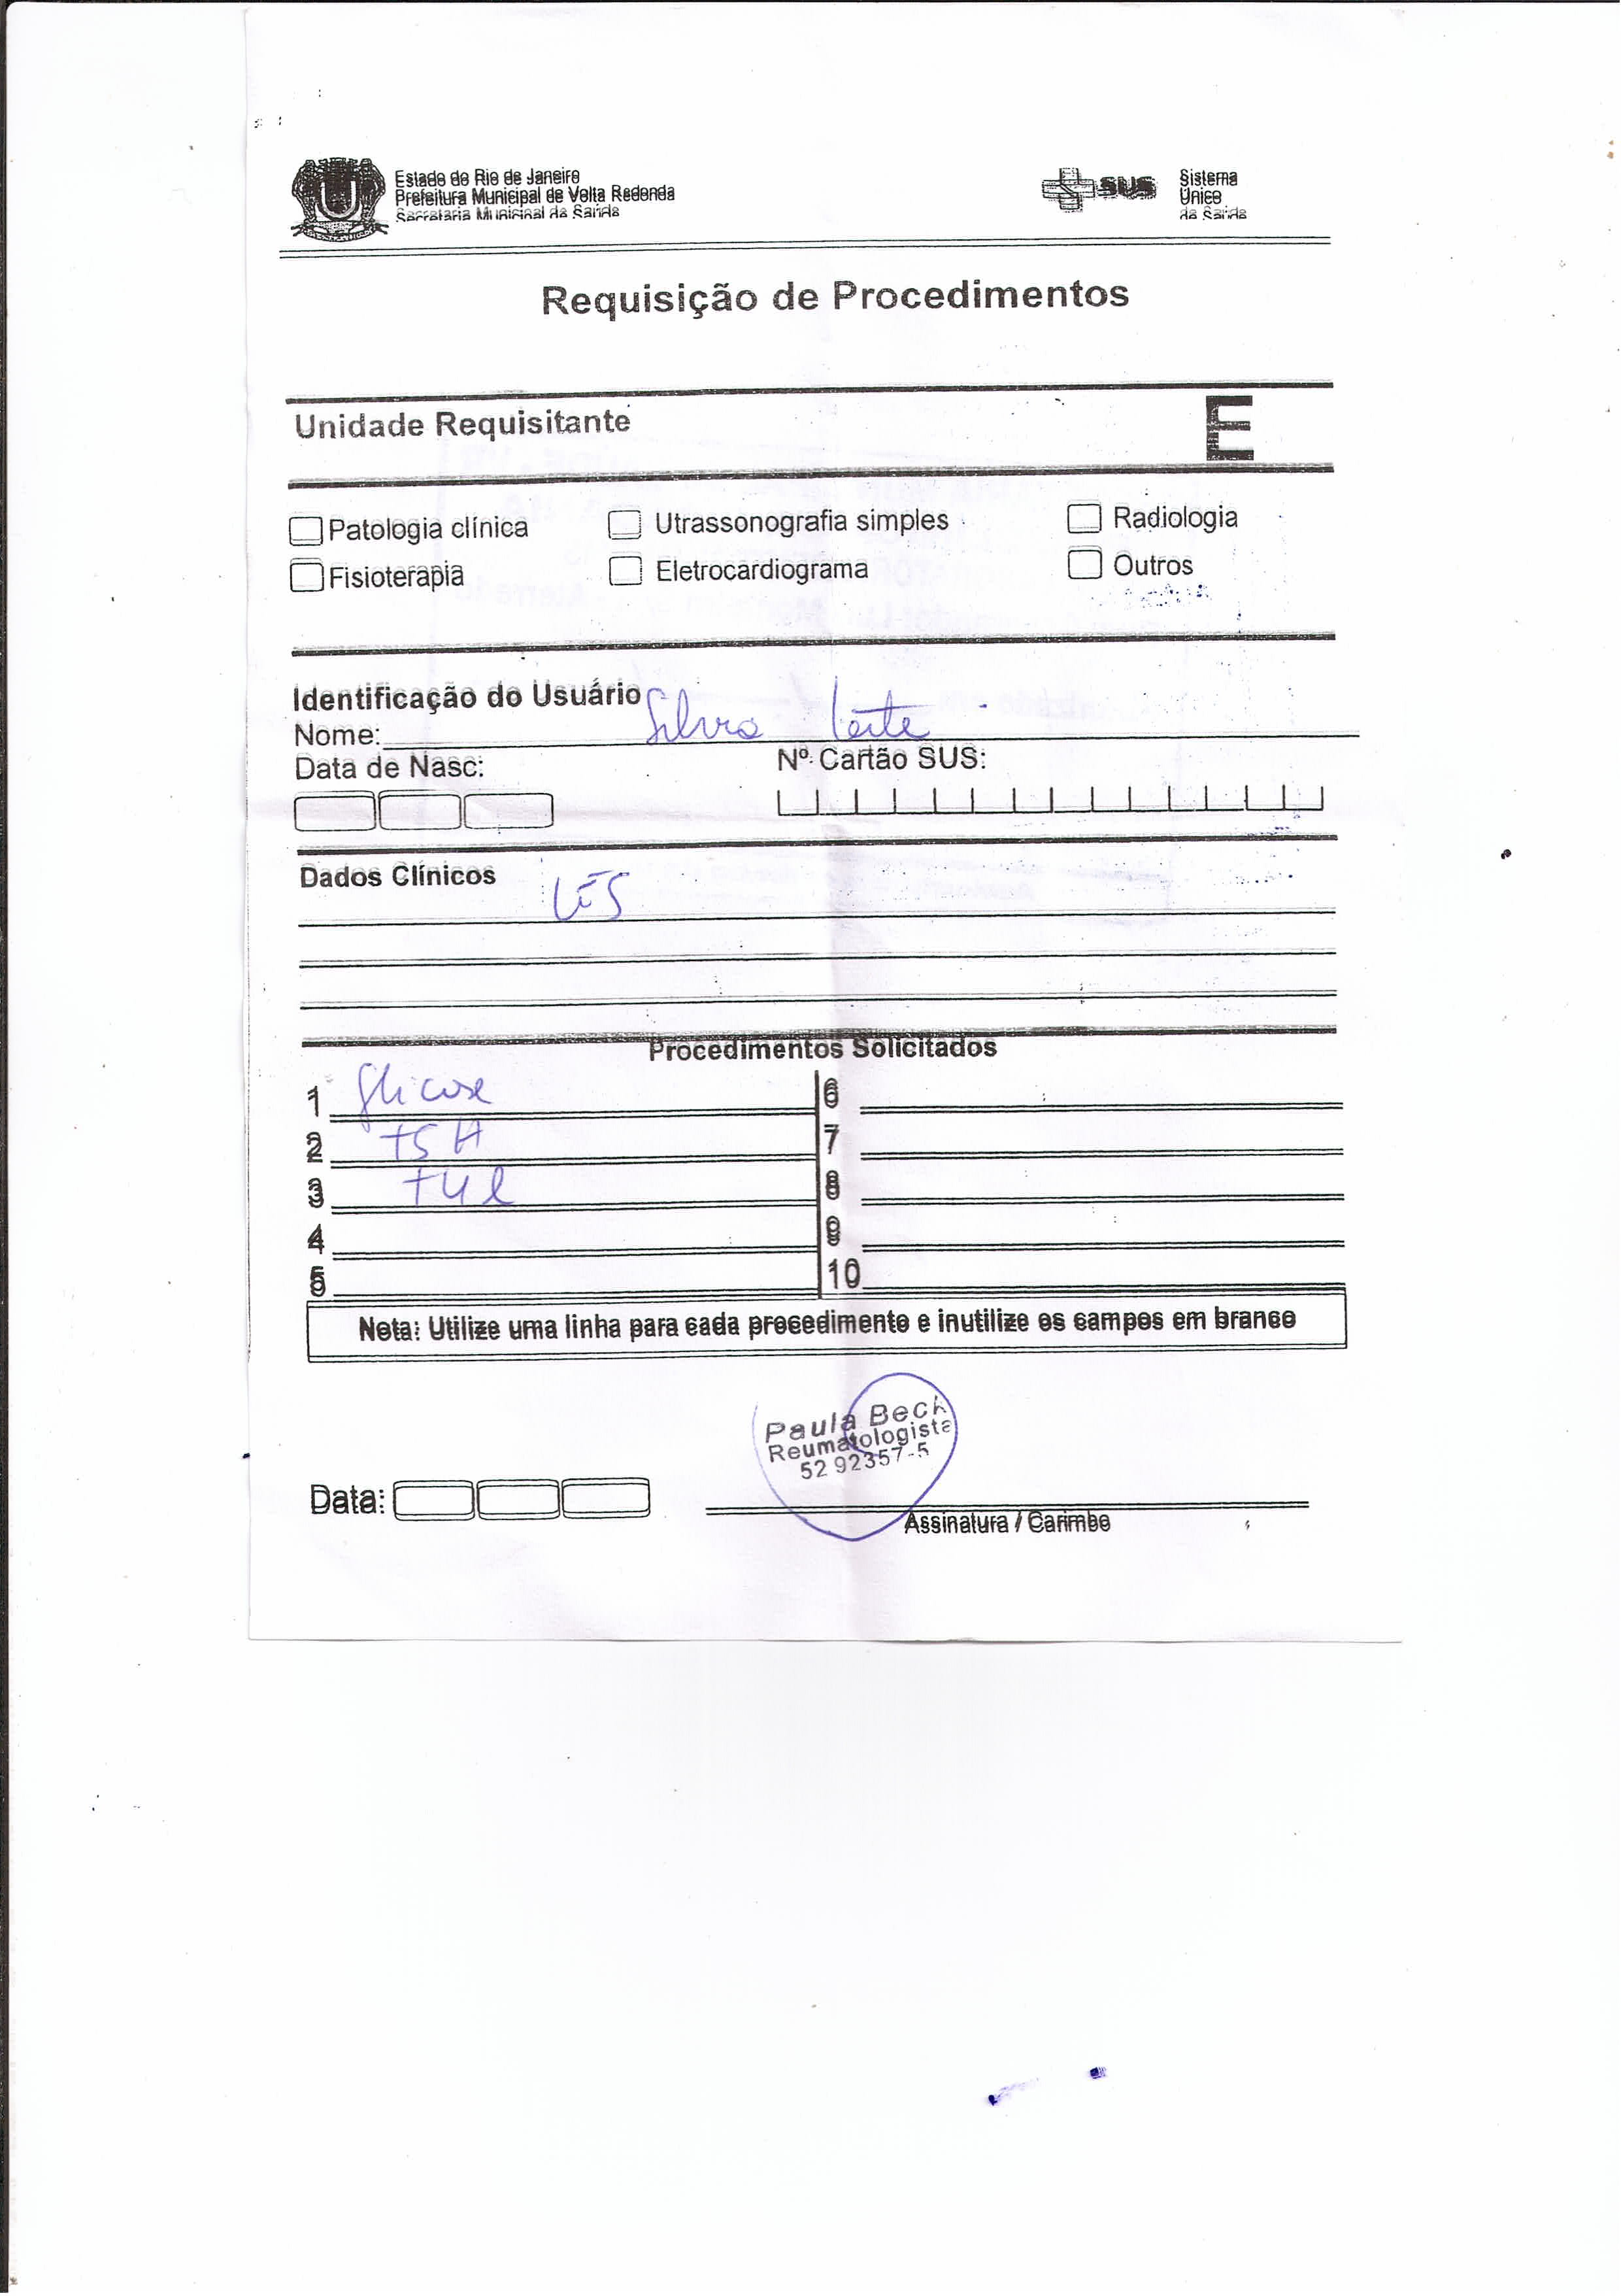 Estado do Rio de Janeiro
Prefeitura Municipal de Volta Redonda
Secretaria Municipal da Saúde
SUS
Sistema
Único
de Saúde
Requisição de Procedimentos
Unidade Requisitante
E
Patologia clínica
Utrassonografia simples
Radiologia
Fisioterapia
Eletrocardiograma
Outros
Identificação do Usuário
Nome: Silvia Leite
Data de Nasc:
Nº Cartão SUS:
Dados Clínicos
LES
Procedimentos Solicitados
1 Glicose
6
2 TSH
7
3 T4L
8
4
9
5
10
Nota: Utilize uma linha para cada procedimento e inutilize os campos em branco
Paula Beck
Reumatologista
52 92357-5
Data:
Assinatura / Carimbo